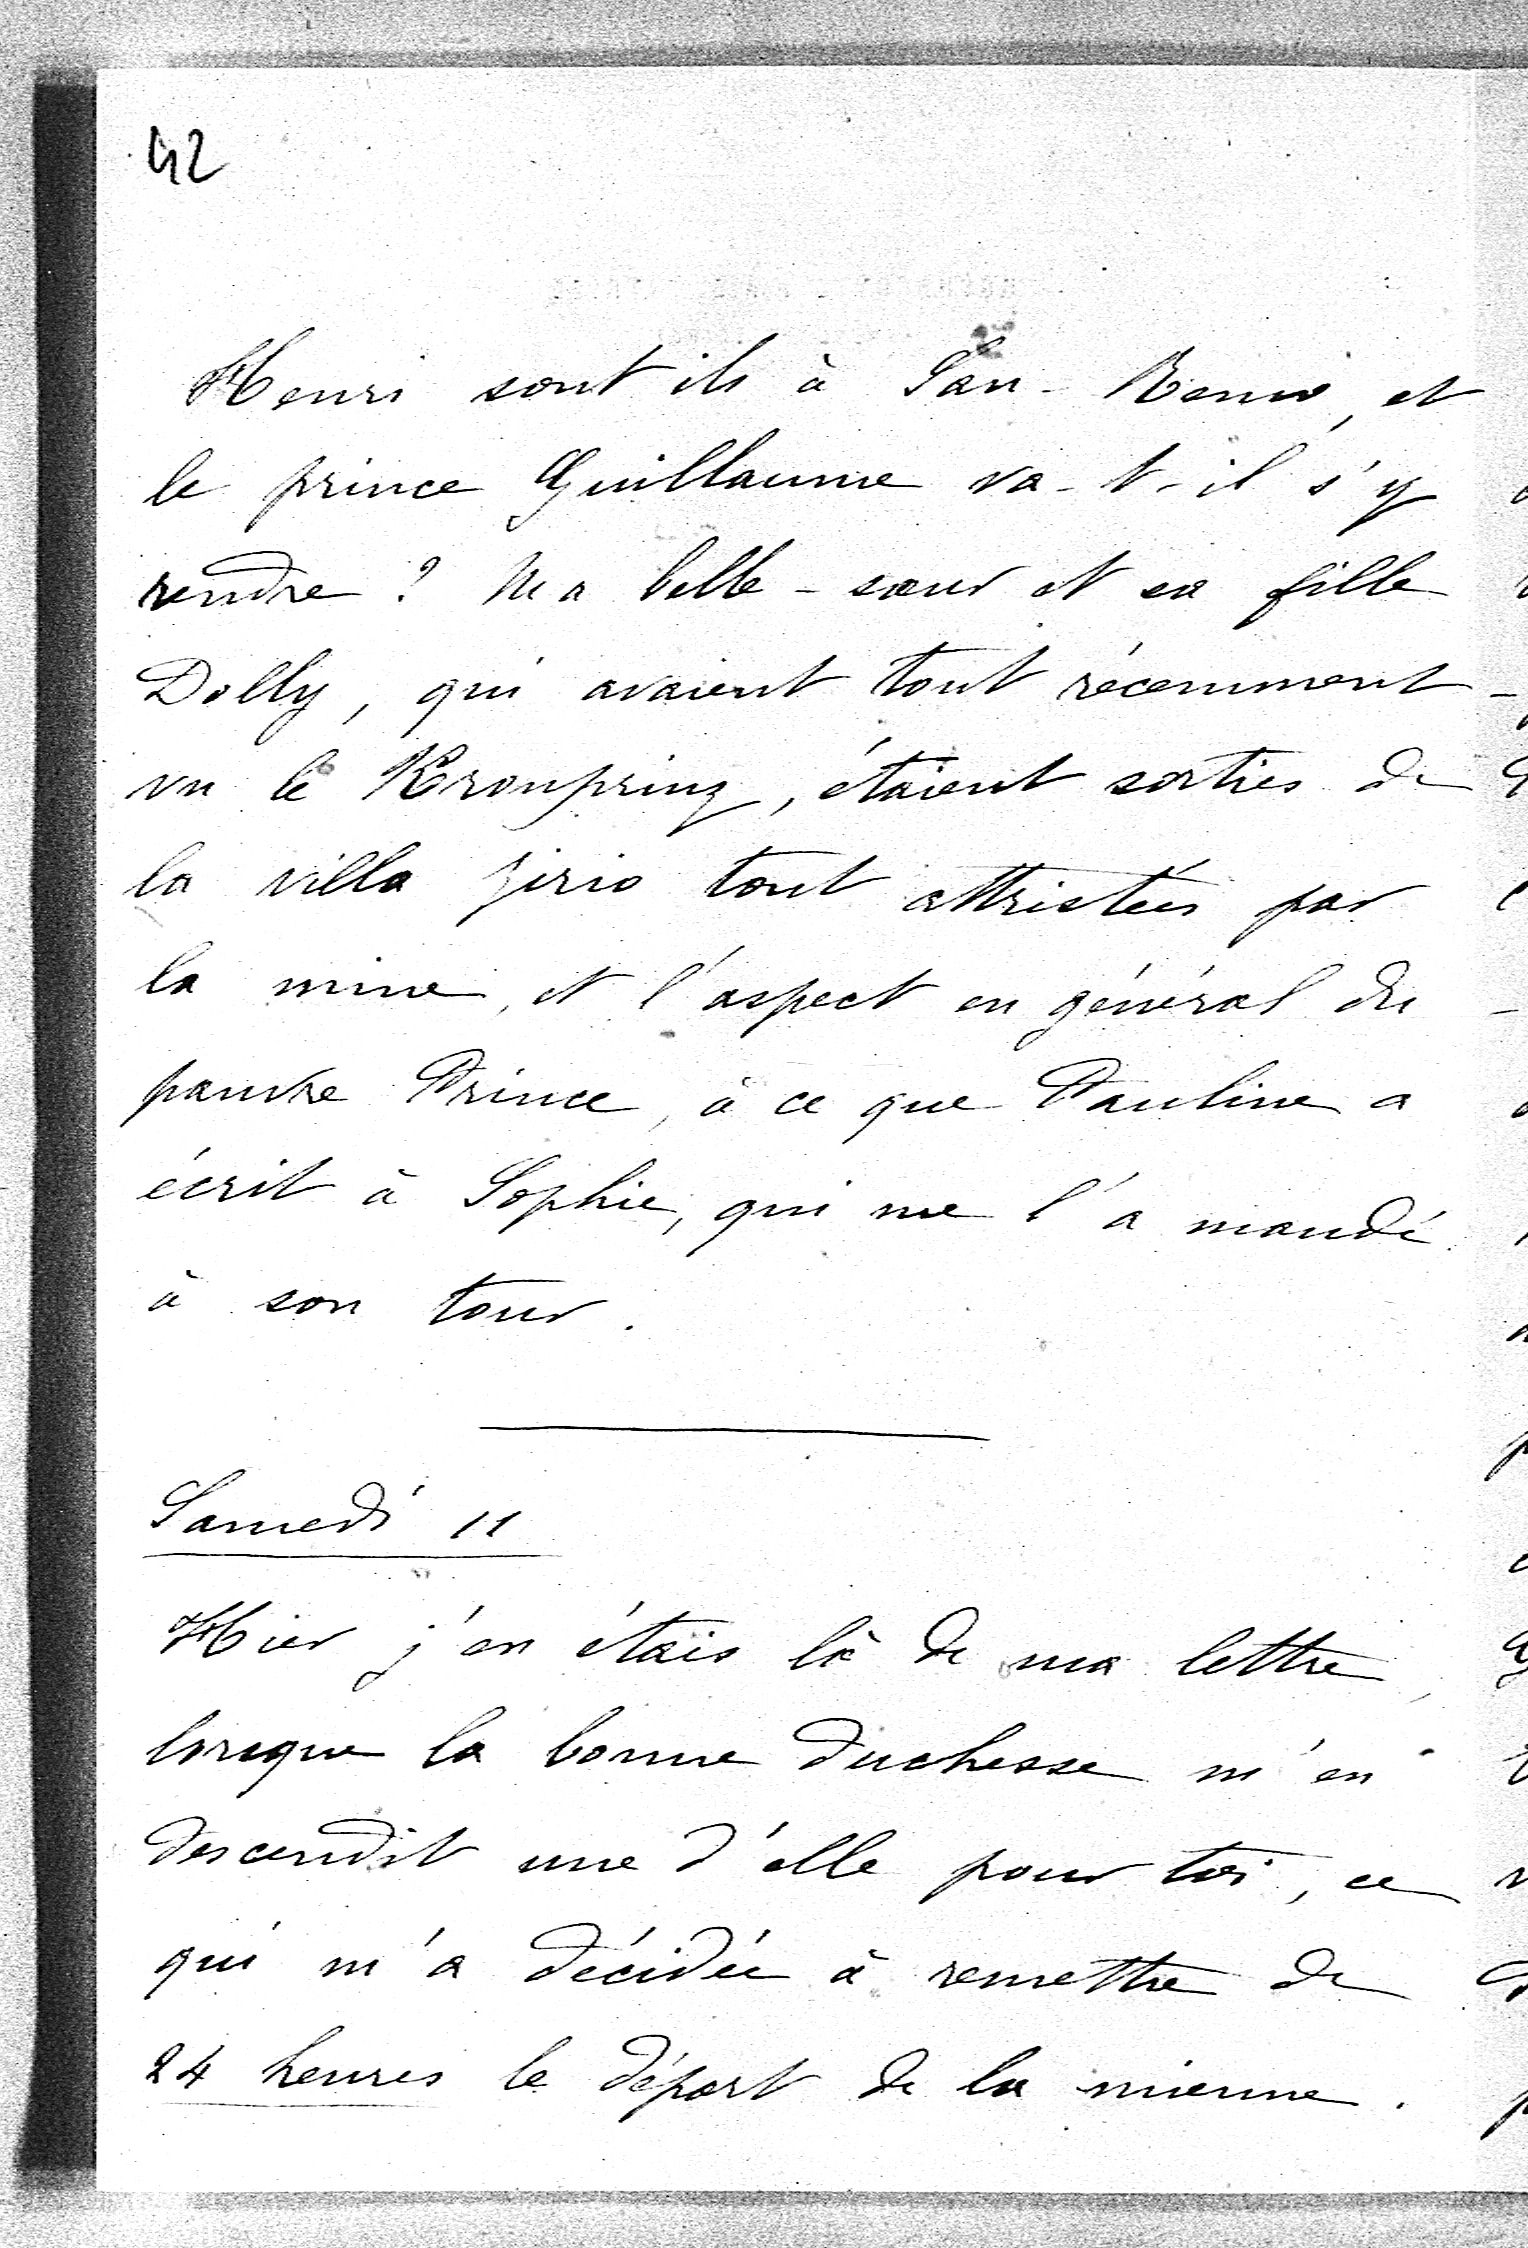 42
Henri sont ils à San-Remo, et
le prince Guillaume va-t-il s'y
rendre ? Ma belle-sœur et sa fille
Dolly, qui avaient tout récemment
vu le Kronprinz, étaient sorties de
la villa Zirio tout attristées par
la mine, et l'aspect en général du
pauvre Prince, à ce que Pauline a
écrit à Sophie, qui me l'a mandé
à son tour.
Samedi 11
Hier j'en étais là de ma lettre,
lorsque la bonne duchesse m'en
descendit une d'elle pour toi, ce
qui m'a décidée à remettre de
24 heures le départ de la mienne.